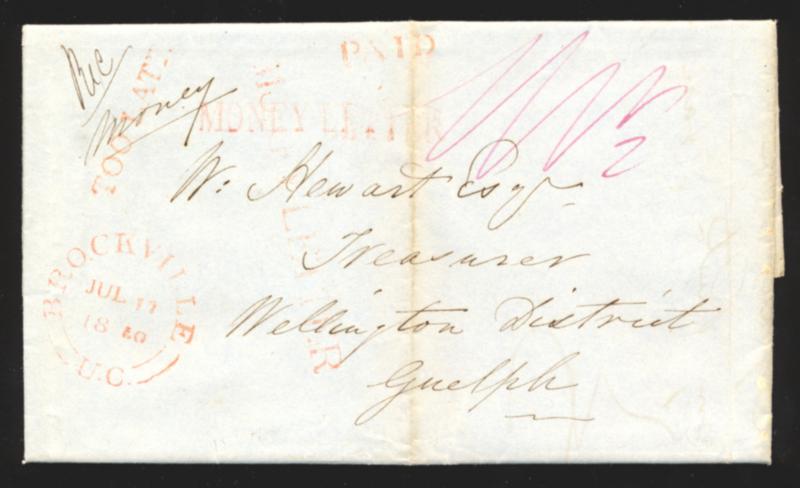 PAID
TOO LATE
Money
MONEY LETTER
MONEY LETTER
W: Hewart Esqr
Treasurer
Wellington District
Guelph
BROCKVILLE
JUL 17
1840
U.C.